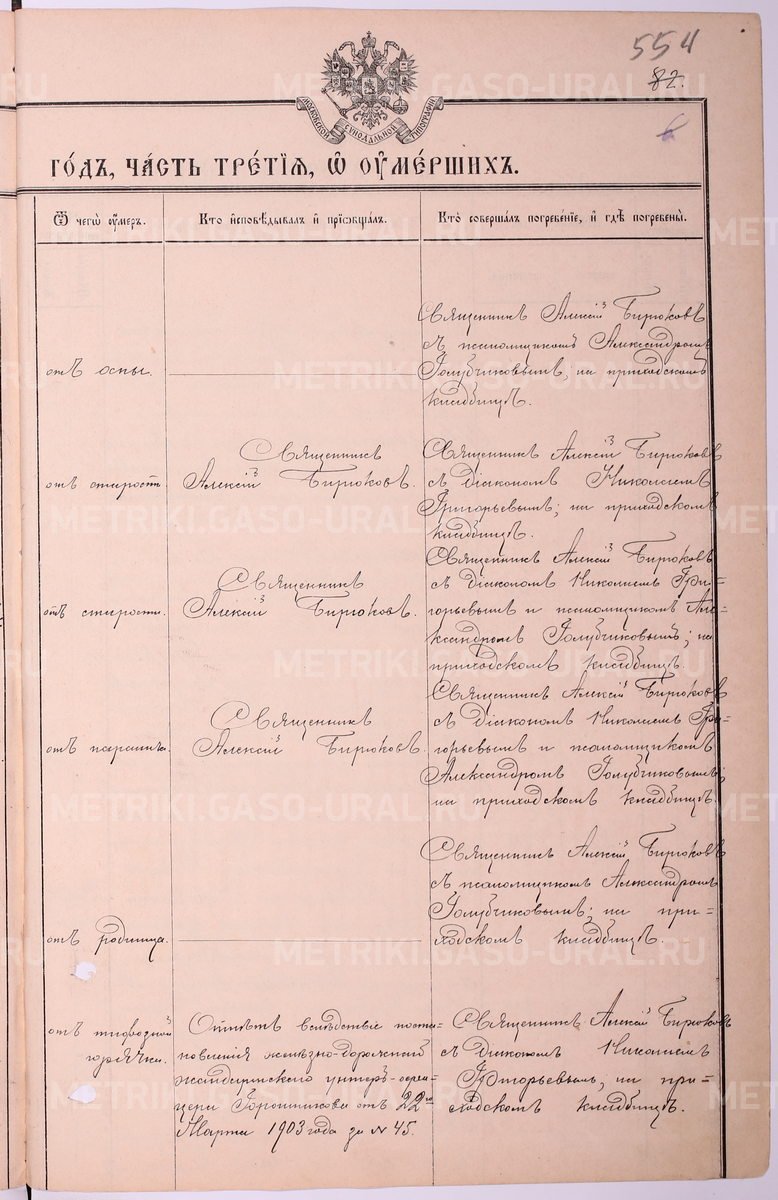 554
82.
МОСКОВСКОЙ СѴНОДАЛЬНОЙ ТИПОГРАФІИ
го́дъ, ча́сть тре́тїѧ, ѡ҆ ᲂу҆ме́ршихъ.
Ѿ чегѡ̀ ᲂу҆́меръ.
Кто̀ и҆сповѣ́дывалъ и҆ прїѡбща́лъ.
Кто̀ соверша́лъ погребе́нїе, и҆ гдѣ̀ погребены̀.
отъ оспы.
Священникъ Алексій Бирюковъ
съ псаломщикомъ Александромъ
Голубчиковымъ; на приходскомъ
кладбищѣ.
отъ старости.
Священникъ
Алексій Бирюковъ.
Священникъ Алексій Бирюковъ
съ діакономъ Николаемъ
Григорьевымъ; на приходскомъ
кладбищѣ.
отъ старости.
Священникъ
Алексій Бирюковъ.
Священникъ Алексій Бирюковъ
съ діакономъ Николаемъ Гри-
горьевымъ и псаломщикомъ Але-
ксандромъ Голубчиковымъ; на
приходскомъ кладбищѣ.
отъ паралича.
Священникъ
Алексій Бирюковъ.
Священникъ Алексій Бирюковъ
съ діакономъ Николаемъ Гри-
горьевымъ и псаломщикомъ
Александромъ Голубчиковымъ;
на приходскомъ кладбищѣ.
отъ родимца.
Священникъ Алексій Бирюковъ
съ псаломщикомъ Александромъ
Голубчиковымъ; на при-
ходскомъ кладбищѣ.
отъ тифозной
горячки.
Отпѣтъ вслѣдствіе поста-
новленія желѣзно-дорожнаго
жандармскаго унтеръ-офи-
цера от 22го
Марта 1903 года за № 45.
Священникъ Алексій Бирюковъ
съ діакономъ Николаемъ
Григорьевымъ; на при-
ходскомъ кладбищѣ.
METRIKI.GASO-URAL.RU